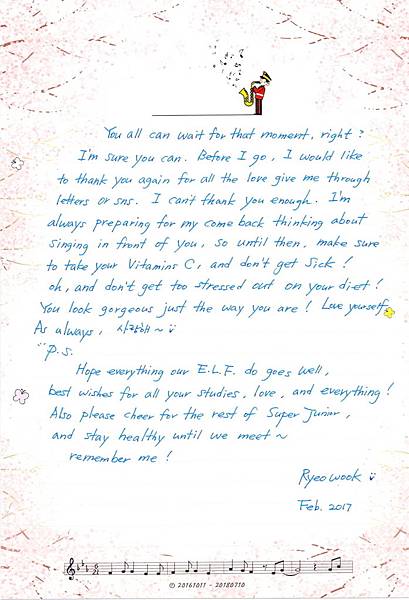 You all can wait for that moment, right?
I'm sure you can. Before I go, I would like
to thank you again for all the love give me through
letters or sns. I can't thank you enough. I'm
always preparing for my come back thinking about
singing in front of you, so until then, make sure
to take your Vitamins C, and don't get sick!
oh, and don't get too stressed out on your diet!
You look gorgeous just the way you are! Love yourself
As always, 사랑해~
P.S.
Hope everything our E.L.F. do goes well,
best wishes for all your studies, love, and everything!
Also please cheer for the rest of Super Junior,
and stay healthy until we meet~
remember me!
Ryeowook
Feb. 2017
© 20161011 - 20180710